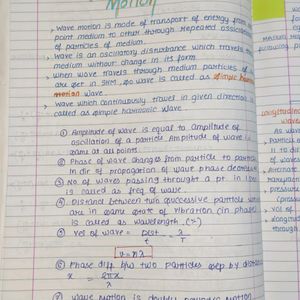 Motion
Wave motion is mode of transport of energy from
point medium to other through repeated
of particles of medium.
Wave is an oscillatory disturbance which travels
medium without change in its form
when wave travels through medium particles of
are get in SHM, so wave is called as simple harmonic
motion wave.
Wave which continuously travel in given direction
called as simple harmonic wave.
① Amplitude of wave is equal to Amplitude of
oscillation of a particle Amplitude of wave is
same at all points.
② Phase of wave changes from particle to particle
In dir of propagation of wave phase
③ No of waves passing through a pt. in 1 sec
is called as freq of wave.
④ Distance between two successive particle
are in same state of vibration (in phase)
is called as wavelength (λ)
⑤ Vel of wave = Dist / t = λ / T
v = nλ
⑥ Phase diff b/w two particles sep by distance
x = 2πx / λ
⑦ Wave motion is doubly
longitudinal
wave
As wav
Particle o
11 to di
of waves
Alternate
pressure
vel of